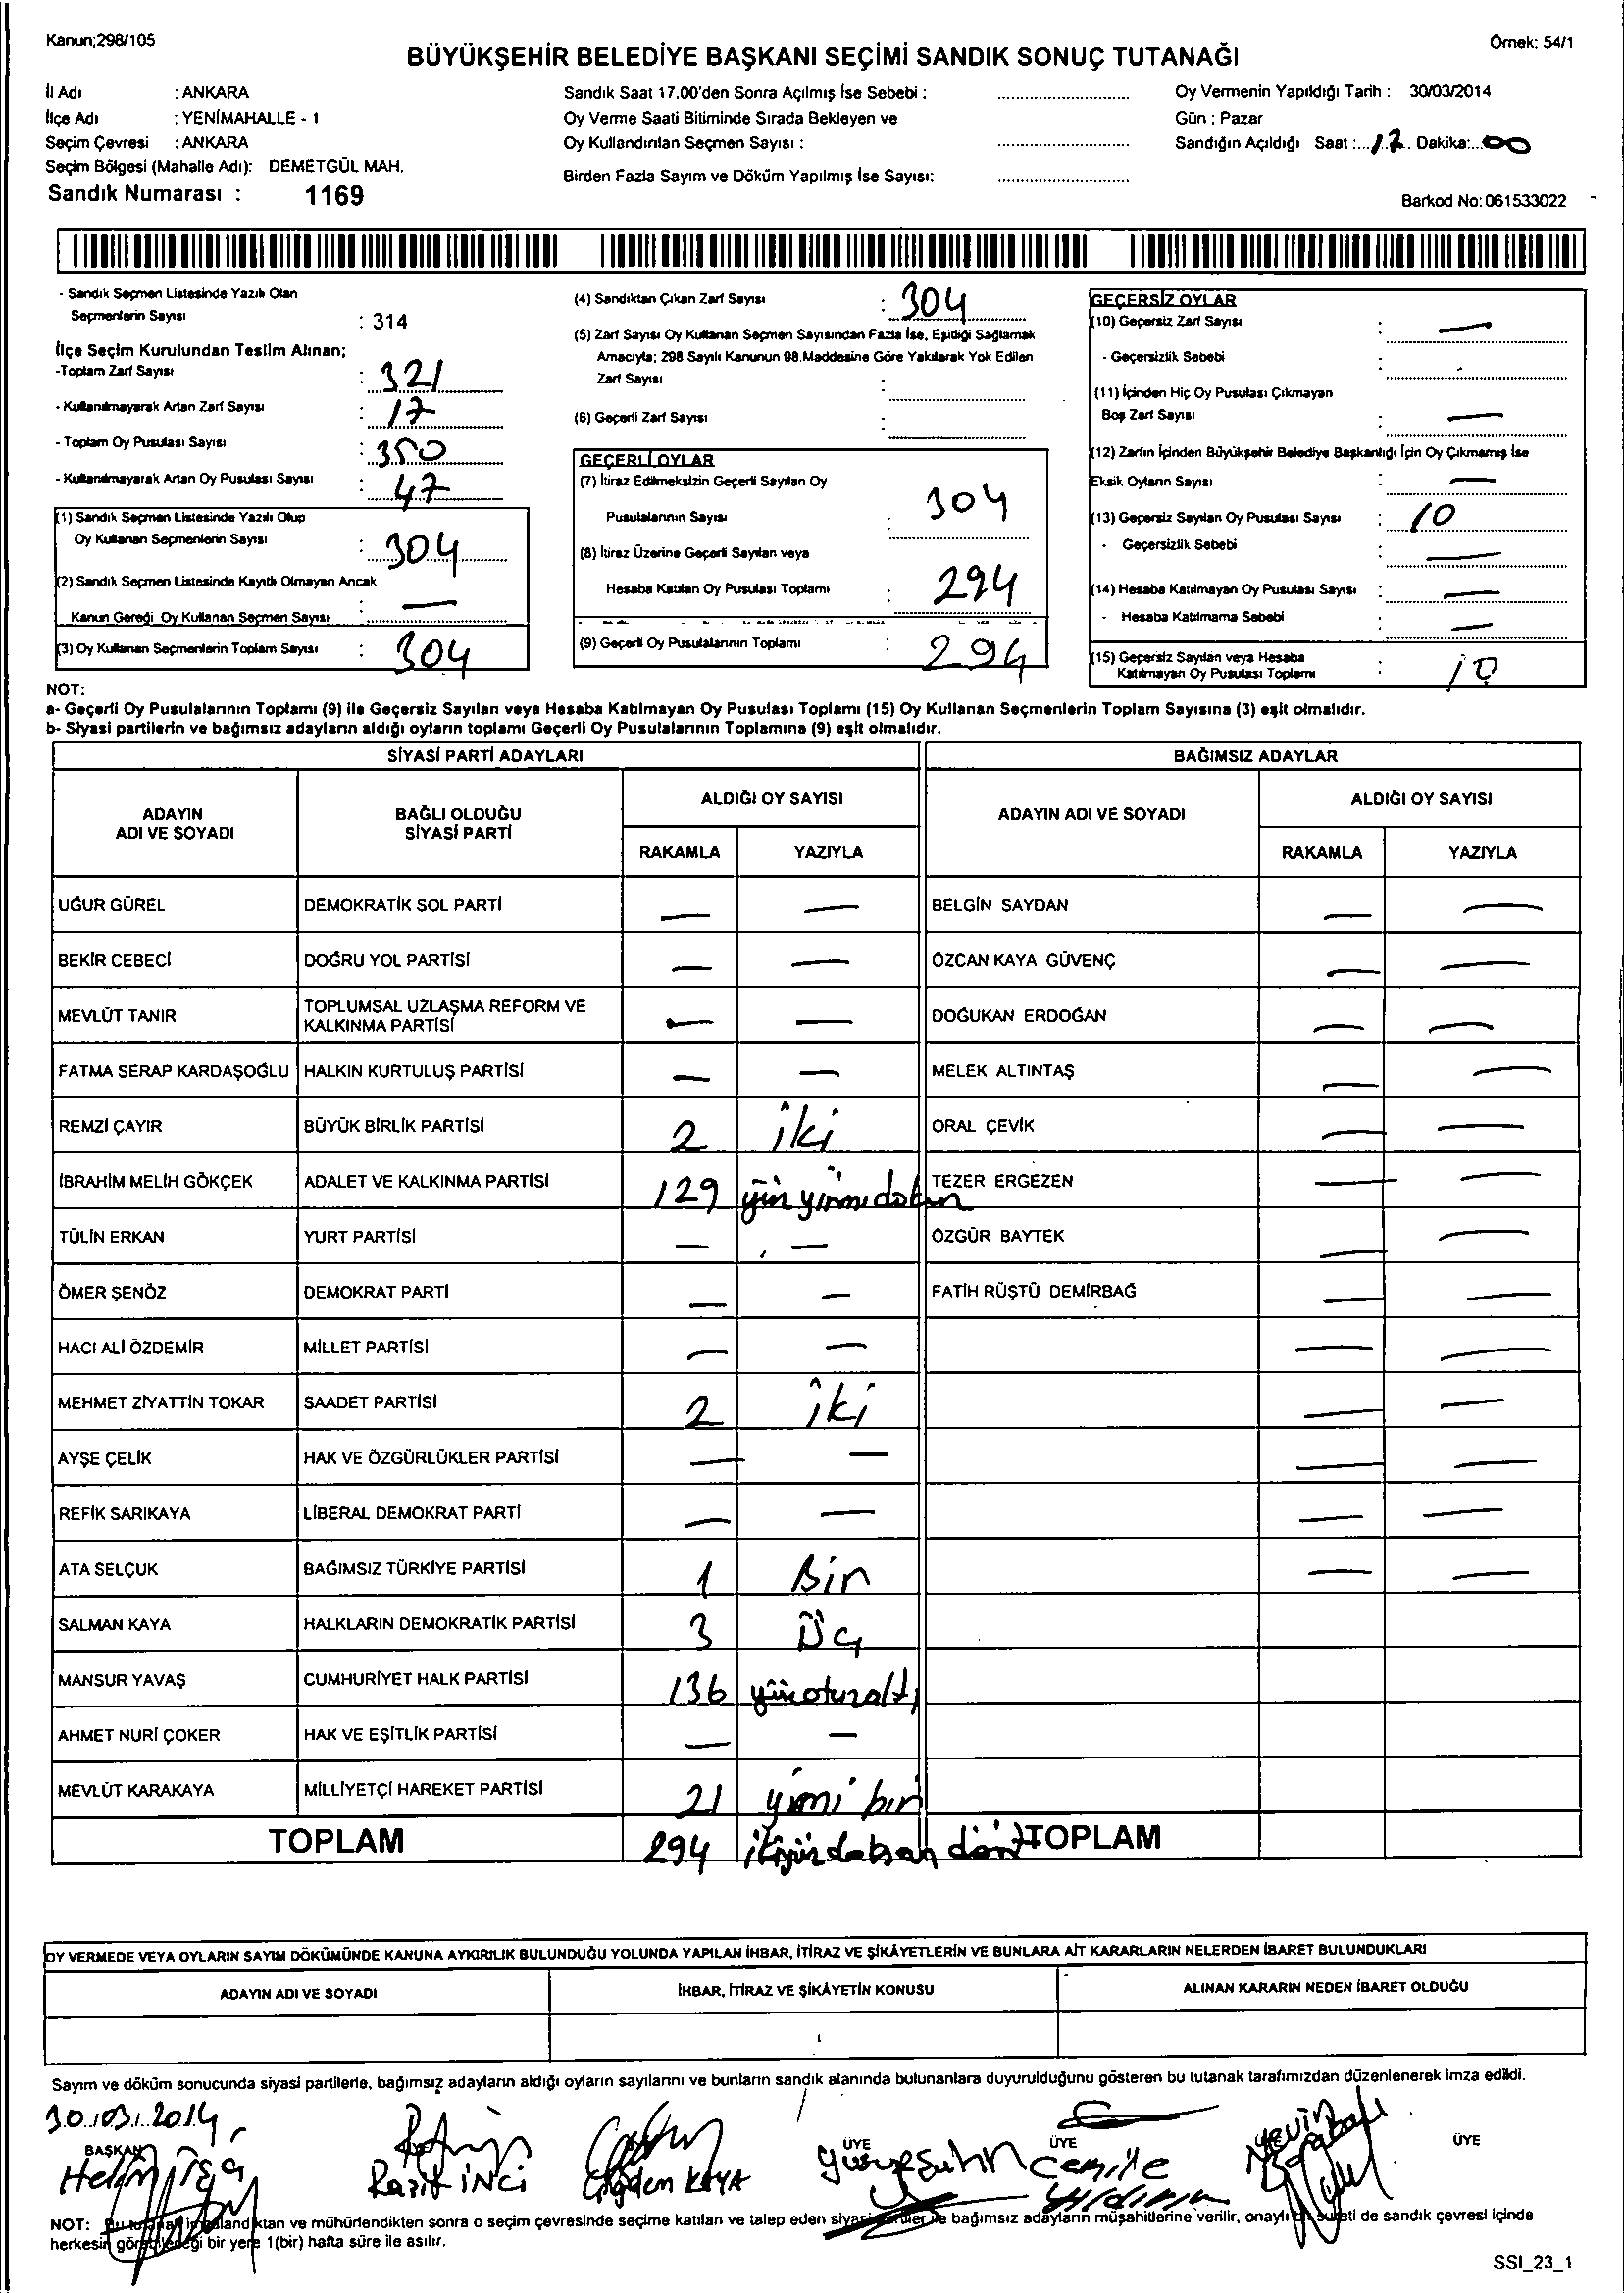 Kanun;298/105
Örnek: 54/1
BÜYÜKŞEHİR BELEDİYE BAŞKANI SEÇİMİ SANDIK SONUÇ TUTANAĞI
İl Adı : ANKARA
İlçe Adı : YENİMAHALLE - 1
Seçim Çevresi : ANKARA
Seçim Bölgesi (Mahalle Adı): DEMETGÜL MAH.
Sandık Numarası : 1169
Sandık Saat 17.00'den Sonra Açılmış İse Sebebi :
Oy Verme Saati Bitiminde Sırada Bekleyen ve
Oy Kullandırılan Seçmen Sayısı :
Birden Fazla Sayım ve Döküm Yapılmış İse Sayısı:
Oy Vermenin Yapıldığı Tarih : 30/03/2014
Gün : Pazar
Sandığın Açıldığı Saat : 17 Dakika: 00
Barkod No: 061533022
- Sandık Seçmen Listesinde Yazılı Olan
Seçmenlerin Sayısı : 314
İlçe Seçim Kurulundan Teslim Alınan;
-Toplam Zarf Sayısı : 321
- Kullanılmayarak Artan Zarf Sayısı : 17
- Toplam Oy Pusulası Sayısı : 350
- Kullanılmayarak Artan Oy Pusulası Sayısı : 47
(1) Sandık Seçmen Listesinde Yazılı Olup
Oy Kullanan Seçmenlerin Sayısı : 304
(2) Sandık Seçmen Listesinde Kayıtlı Olmayan Ancak
Kanun Gereği Oy Kullanan Seçmen Sayısı : —
(3) Oy Kullanan Seçmenlerin Toplam Sayısı : 304
(4) Sandıktan Çıkan Zarf Sayısı : 304
(5) Zarf Sayısı Oy Kullanan Seçmen Sayısından Fazla İse, Eşitliği Sağlamak
Amacıyla; 298 Sayılı Kanunun 98.Maddesine Göre Yakılarak Yok Edilen
Zarf Sayısı :
(6) Geçerli Zarf Sayısı :
GEÇERLİ OYLAR
(7) İtiraz Edilmeksizin Geçerli Sayılan Oy
Pusulalarının Sayısı : 304
(8) İtiraz Üzerine Geçerli Sayılan veya
Hesaba Katılan Oy Pusulası Toplamı : 294
(9) Geçerli Oy Pusulalarının Toplamı : 294
GEÇERSİZ OYLAR
(10) Geçersiz Zarf Sayısı : —
- Geçersizlik Sebebi :
(11) İçinden Hiç Oy Pusulası Çıkmayan
Boş Zarf Sayısı : —
(12) Zarfın İçinden Büyükşehir Belediye Başkanlığı İçin Oy Çıkmamış İse
Eksik Oyların Sayısı : —
(13) Geçersiz Sayılan Oy Pusulası Sayısı : 10
- Geçersizlik Sebebi : —
(14) Hesaba Katılmayan Oy Pusulası Sayısı : —
- Hesaba Katılmama Sebebi : —
(15) Geçersiz Sayılan veya Hesaba
Katılmayan Oy Pusulası Toplamı : 10
NOT:
a- Geçerli Oy Pusulalarının Toplamı (9) ile Geçersiz Sayılan veya Hesaba Katılmayan Oy Pusulası Toplamı (15) Oy Kullanan Seçmenlerin Toplam Sayısına (3) eşit olmalıdır.
b- Siyasi partilerin ve bağımsız adayların aldığı oyların toplamı Geçerli Oy Pusulalarının Toplamına (9) eşit olmalıdır.
SİYASİ PARTİ ADAYLARI
BAĞIMSIZ ADAYLAR
ADAYIN ADI VE SOYADI
BAĞLI OLDUĞU SİYASİ PARTİ
ALDIĞI OY SAYISI
RAKAMLA YAZIYLA
ADAYIN ADI VE SOYADI
ALDIĞI OY SAYISI
RAKAMLA YAZIYLA
UĞUR GÜREL DEMOKRATİK SOL PARTİ — — BELGİN SAYDAN — —
BEKİR CEBECİ DOĞRU YOL PARTİSİ — — ÖZCAN KAYA GÜVENÇ — —
MEVLÜT TANIR TOPLUMSAL UZLAŞMA REFORM VE KALKINMA PARTİSİ — — DOĞUKAN ERDOĞAN — —
FATMA SERAP KARDAŞOĞLU HALKIN KURTULUŞ PARTİSİ — — MELEK ALTINTAŞ — —
REMZİ ÇAYIR BÜYÜK BİRLİK PARTİSİ 2 iki ORAL ÇEVİK — —
İBRAHİM MELİH GÖKÇEK ADALET VE KALKINMA PARTİSİ 129 yüz yirmi dokuz TEZER ERGEZEN — —
TÜLİN ERKAN YURT PARTİSİ — — ÖZGÜR BAYTEK — —
ÖMER ŞENÖZ DEMOKRAT PARTİ — — FATİH RÜŞTÜ DEMİRBAĞ — —
HACI ALİ ÖZDEMİR MİLLET PARTİSİ — — — —
MEHMET ZİYATTİN TOKAR SAADET PARTİSİ 2 iki — —
AYŞE ÇELİK HAK VE ÖZGÜRLÜKLER PARTİSİ — — — —
REFİK SARIKAYA LİBERAL DEMOKRAT PARTİ — — — —
ATA SELÇUK BAĞIMSIZ TÜRKİYE PARTİSİ 1 Bir — —
SALMAN KAYA HALKLARIN DEMOKRATİK PARTİSİ 3 Üç
MANSUR YAVAŞ CUMHURİYET HALK PARTİSİ 136 yüzotuzaltı
AHMET NURİ ÇOKER HAK VE EŞİTLİK PARTİSİ — —
MEVLÜT KARAKAYA MİLLİYETÇİ HAREKET PARTİSİ 21 yirmi bir
TOPLAM 294 ikiyüzdoksan dört TOPLAM
OY VERMEDE VEYA OYLARIN SAYIM DÖKÜMÜNDE KANUNA AYKIRILIK BULUNDUĞU YOLUNDA YAPILAN İHBAR, İTİRAZ VE ŞİKÂYETLERİN VE BUNLARA AİT KARARLARIN NELERDEN İBARET BULUNDUKLARI
ADAYIN ADI VE SOYADI İHBAR, İTİRAZ VE ŞİKÂYETİN KONUSU ALINAN KARARIN NEDEN İBARET OLDUĞU
Sayım ve döküm sonucunda siyasi partilerle, bağımsız adayların aldığı oyların sayılarını ve bunların sandık alanında bulunanlara duyurulduğunu gösteren bu tutanak tarafımızdan düzenlenerek imza edildi.
30/03/2014
BAŞKAN ÜYE ÜYE ÜYE
Razik İNCİ Çiğdem KAYA Cemile Yıldırım
NOT: Bu tutanak ktan ve mühürlendikten sonra o seçim çevresinde seçime katılan ve talep eden siyasi partiler ile bağımsız adayların müşahitlerine verilir, onaylı bir sureti de sandık çevresi içinde
herkesin görebileceği bir yere 1(bir) hafta süre ile asılır.
SSI_23_1